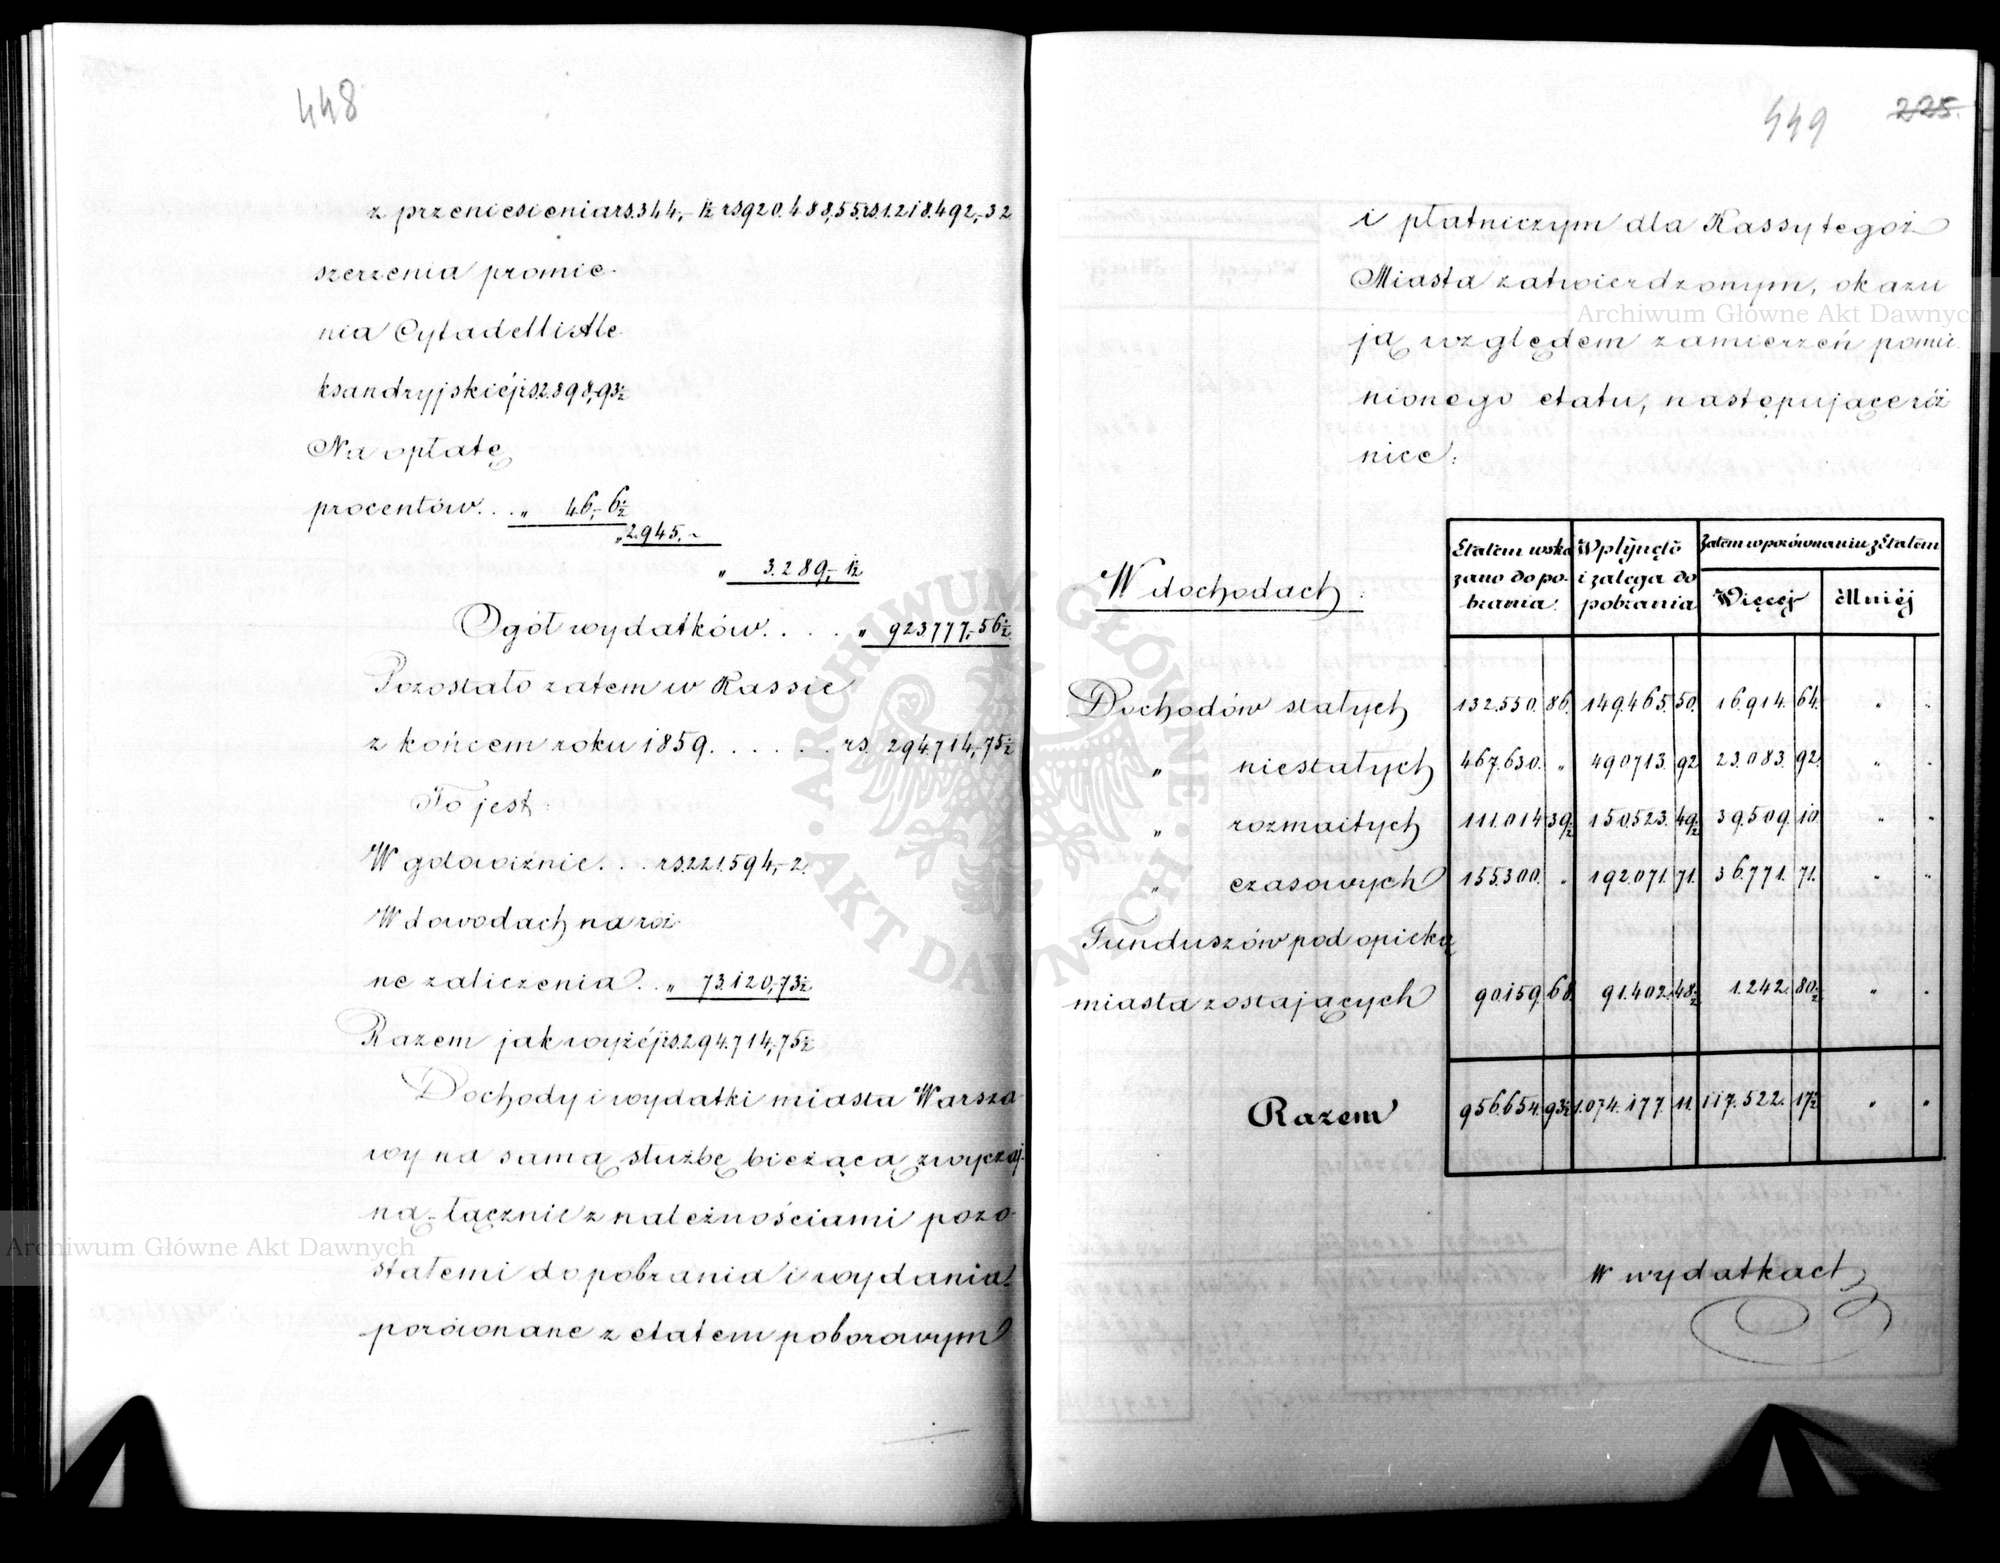 448
z przeniesienia rs. 344,-½ rs 920.488,55 rs. 1.218.492,-32
szerzenia promie-
nia Cytadelli Ale-
ksandryjskiéj rs 2.898,-93½
Na opłatę
procentów. . „ 46,-6½
„ 2.945.-
„ 3.289,-½
Ogół wydatków. . . . „ 923777,-56½
Pozostało zatem w Kassie
z końcem roku 1859. . . . . . rs. 294.714,-75½
To jest:
W gotowiźnie. . . rs. 221.594,-2.
W dowodach na róż-
ne zaliczenia. . „ 73.120,-73½
Razem jak wyżéj rs. 294.714,-75½
Dochody i wydatki miasta Warsza-
wy na samą służbę bieżącą zwyczaj-
ną, łącznie z należnościami pozo-
stałemi do pobrania i wydania
porównane z etatem poborowym
449 225.
i płatniczym dla Kassy tegoż
Miasta zatwierdzonym, okazu
ją względem zamierzeń pomie-
nionego etatu, następujące róż
nice:
W dochodach:
Etatem wska- Wpłynęło Zatem w porównaniu z Etatem
zano do po- i zalega do
brania. pobrania Więcej Mniéj
Dochodów stałych 132.550. 86. 149.465. 50. 16.914. 64. „ „
„ niestałych 467.630. „ 490713. 92 23.083. 92. „ „
„ rozmaitych 111.014 39½ 150.523. 49½ 39.509. 10 „ „
„ czasowych 155.300. „ 192.071. 71. 36.771. 71. „ „
Funduszów pod opieką
miasta zostających 90.159. 68. 91.402. 48½ 1.242. 80½ „ „
Razem 956.654. 93½ 1.074.177. 11. 117.522. 17½ „ „
W wydatkach
Archiwum Główne Akt Dawnych
Archiwum Główne Akt Dawnych
ARCHIWUM GŁÓWNE • AKT DAWNYCH •